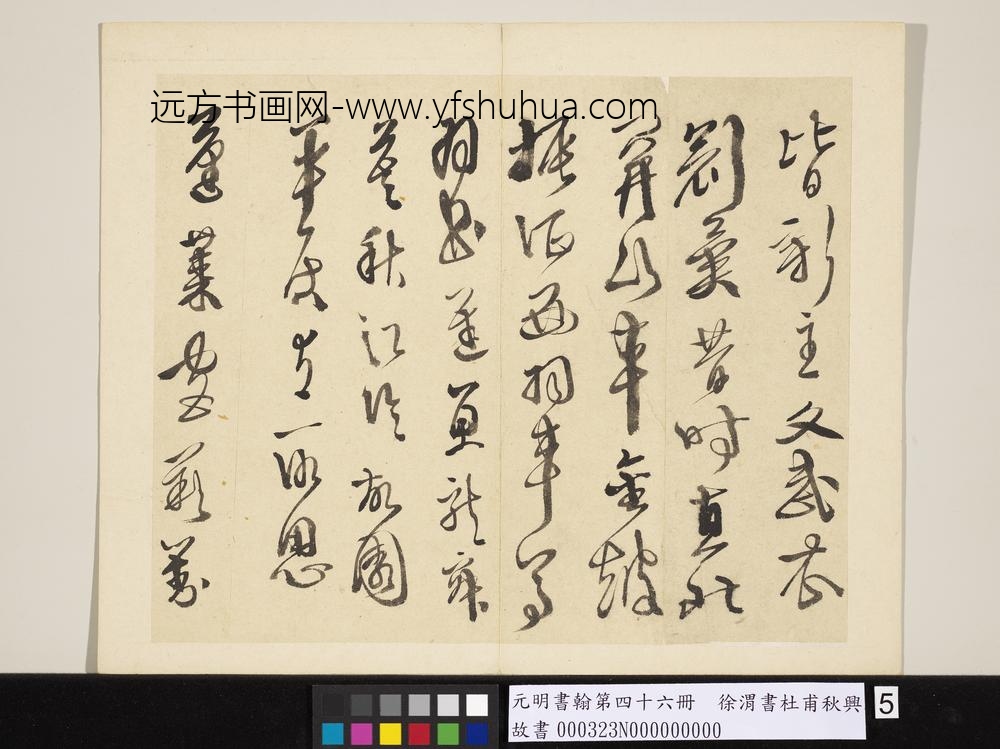 远方书画网-www.yfshuhua.com
皆新主文武衣
冠異昔時直北
關山車金鼓
振征西羽車馬
羽書遲魚龍寂
寞秋江冷故國
平居有所思
蓬萊宮闕對
元明書翰第四十六冊 徐渭書杜甫秋興
故書 000323N000000000
5